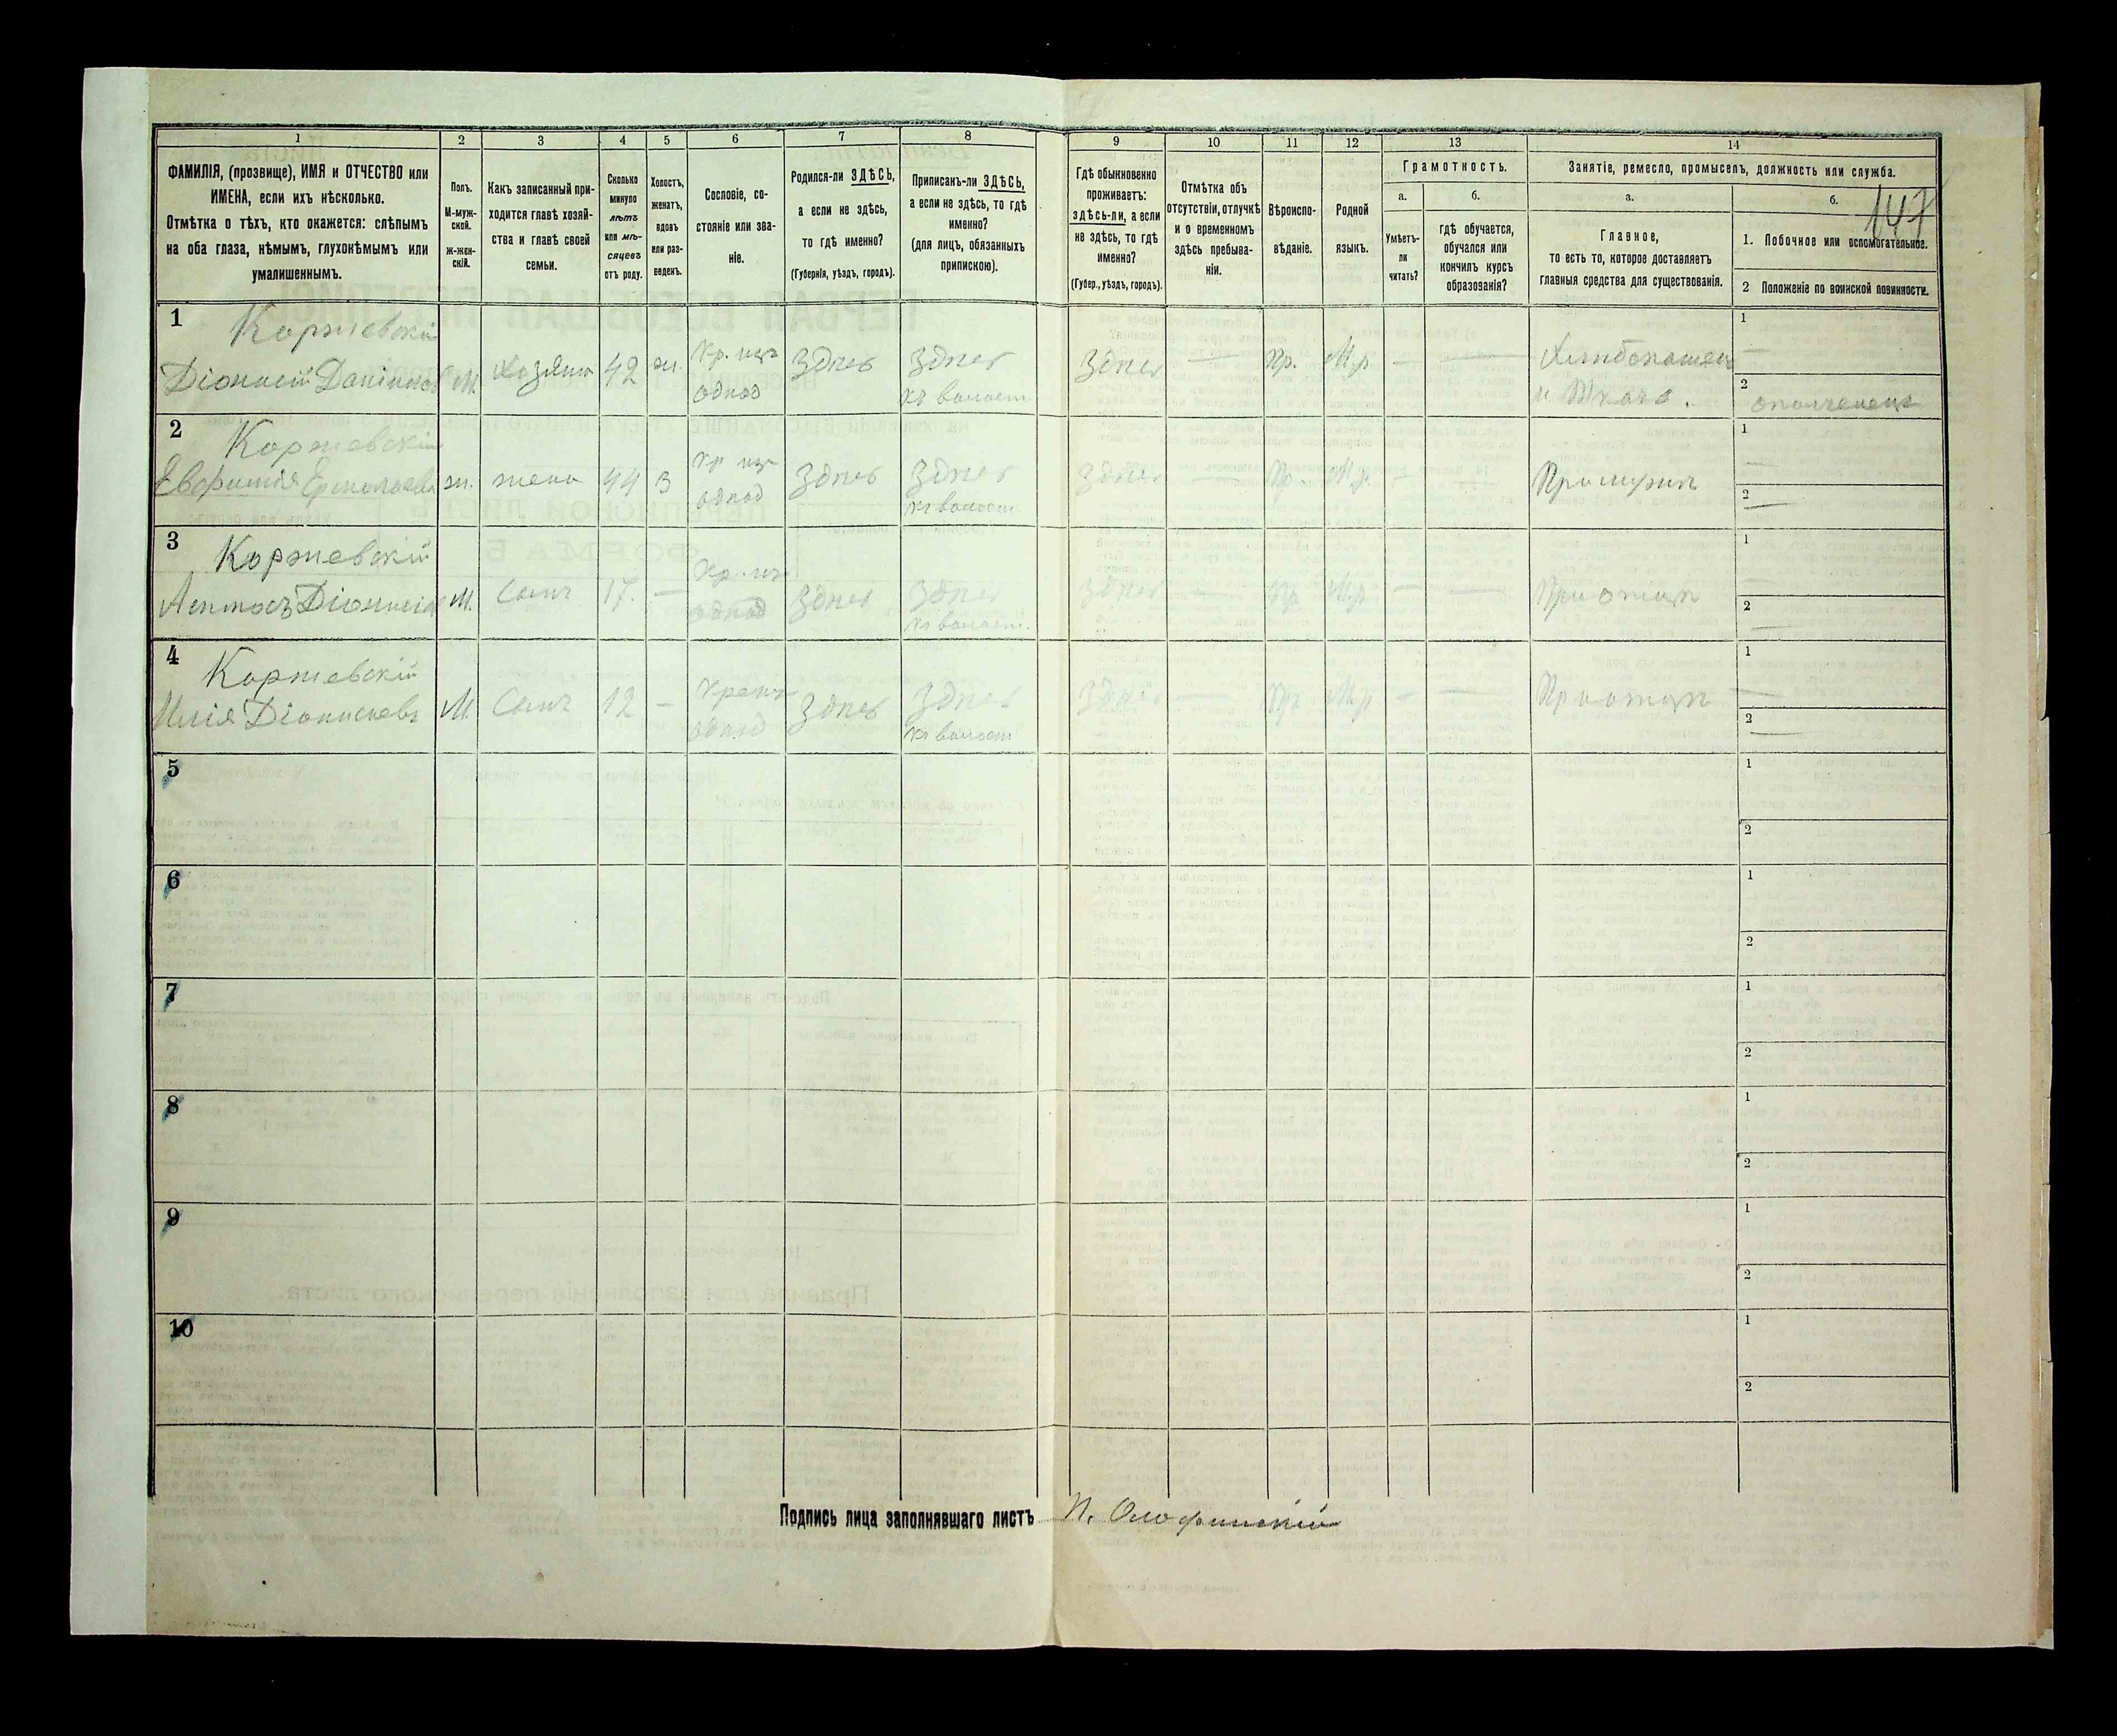 1 2 3 4 5 6 7 8 9 10 11 12 13 14
ФАМИЛІЯ, (прозвище), ИМЯ и ОТЧЕСТВО или
ИМЕНА, если ихъ нѣсколько.
Отмѣтка о тѣхъ, кто окажется: слѣпымъ
на оба глаза, нѣмымъ, глухонѣмымъ или
умалишеннымъ.
Полъ.
М-муж-
ской.
ж-жен-
скій.
Какъ записанный при-
ходится главѣ хозяй-
ства и главѣ своей
семьи.
Сколько
минуло
лѣтъ
или мѣ-
сяцевъ
отъ роду.
Холостъ,
женатъ,
вдовъ
или раз-
веденъ.
Сословіе, со-
стояніе или зва-
ніе.
Родился-ли ЗДѢСЬ,
а если не здѣсь,
то гдѣ именно?
(Губернія, уѣздъ, городъ).
Приписанъ-ли ЗДѢСЬ,
а если не здѣсь, то гдѣ
именно?
(для лицъ, обязанныхъ
припискою).
Гдѣ обыкновенно
проживаетъ:
здѣсь-ли, а если
не здѣсь, то гдѣ
именно?
(Губер., уѣздъ, городъ).
Отмѣтка объ
отсутствіи, отлучкѣ
и о временномъ
здѣсь пребыва-
ніи.
Вѣроиспо-
вѣданіе.
Родной
языкъ.
Грамотность.
а.
Умѣетъ-
ли
читать?
б.
гдѣ обучается,
обучался или
кончилъ курсъ
образованія?
Занятіе, ремесло, промыселъ, должность или служба.
а.
Главное,
то есть то, которое доставляетъ
главныя средства для существованія.
б.
147
1. Побочное или вспомогательное.
2 Положеніе по воинской повинности.
1 Коржевскій
Діонисій М. Хозяинъ 42 ж. Кр. изъ однод Здѣсь Здѣсь къ волост Здѣсь — Пр. М.р — —
1 —
2 ополченецъ
2 Коржевскій
ж. жена 44 з Кр изъ однод Здѣсь Здѣсь къ волост Здѣсь — Пр. М.р. — — При мужѣ
1 —
2 —
3 Коржевскій
М. Сынъ 17. — Кр. изъ однод Здѣсь Здѣсь къ волост. Здѣсь — Пр М.р — — При отцѣ
1 —
2 —
4 Коржевскій
Илія Діонисіевъ М. Сынъ 12 — однод Здѣсь Здѣсь къ волост Здѣсь — Пр М.р — — При отцѣ
1 —
2 —
5 1
2
6 1
2
7 1
2
8 1
2
9 1
2
10 1
2
Подпись лица заполнявшаго листъ